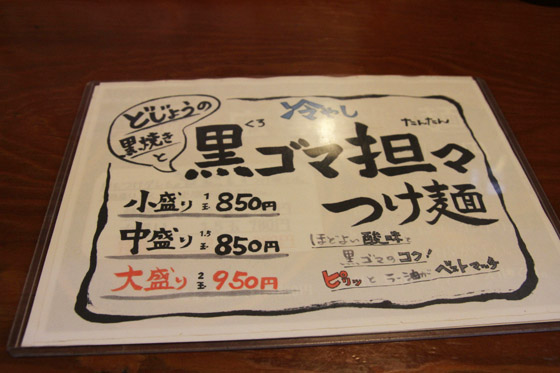 どじょうの
黒焼きと
冷やし
くろ
たんたん
黒ゴマ担々
つけ麺
小盛り 1玉 850円
中盛り 1.5玉 850円
大盛り 2玉 950円
ほどよい酸味と
黒ゴマのコク!
ピリッとラー油がベストマッチ